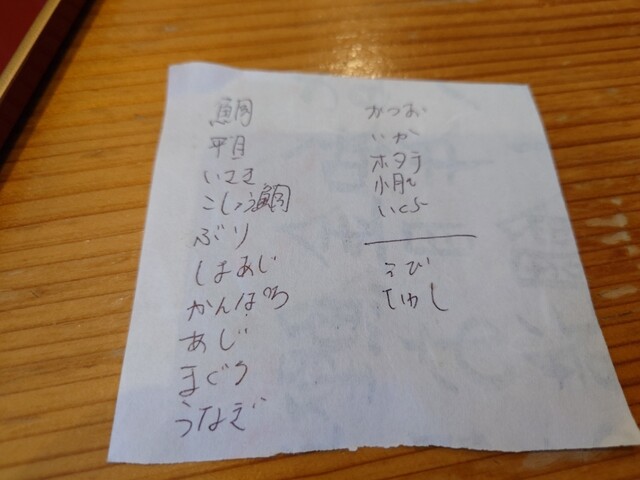 鯛
平目
いさき
こしょう鯛
ぶり
しまあじ
かんぱち
あじ
まぐろ
かつお
いか
ホタテ
小肌
いくら